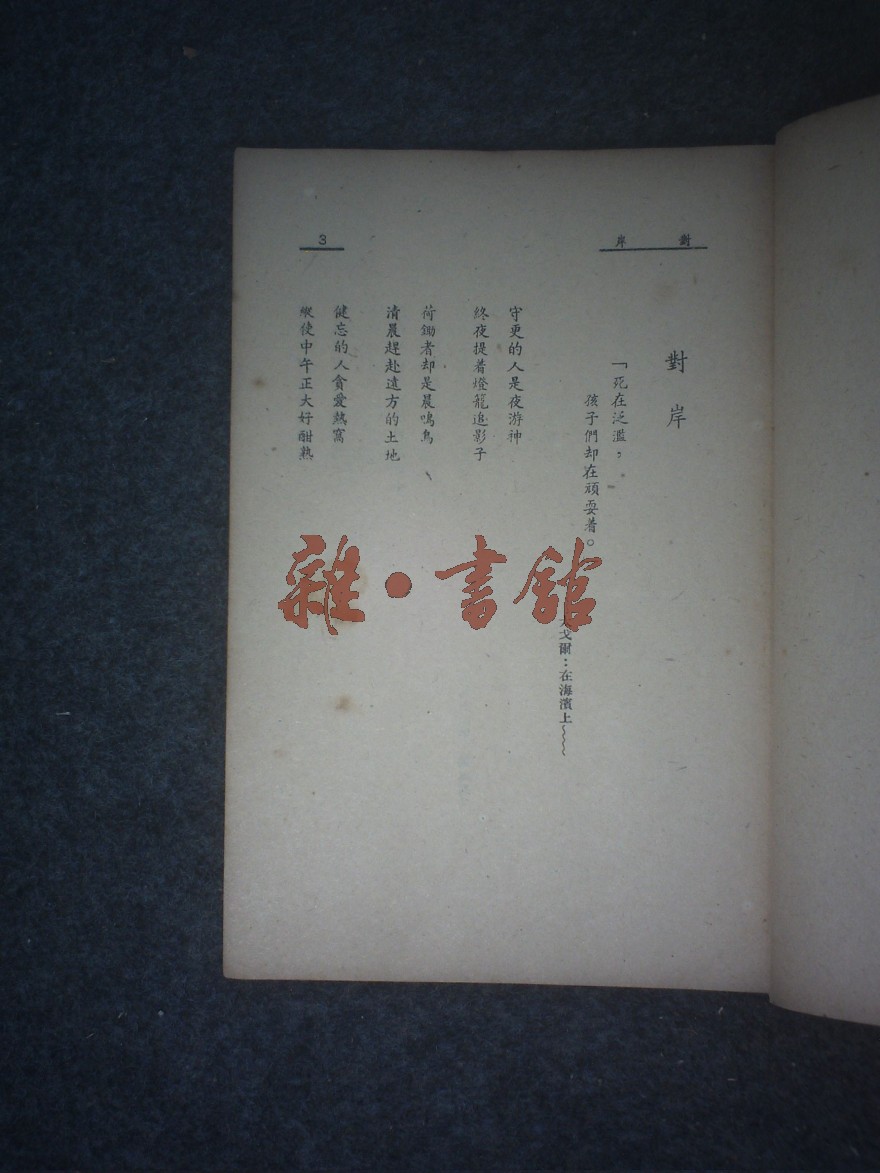 對岸
3
對岸
「死在泛濫，
孩子們却在頑耍着。
戈爾：在海濱上~~~~
守更的人是夜游神
終夜提着燈籠追影子
荷鋤者却是晨鳴鳥
清晨趕赴遠方的土地
健忘的人貪愛熱窩
縱使中午正大好酣熟
雜·書舘